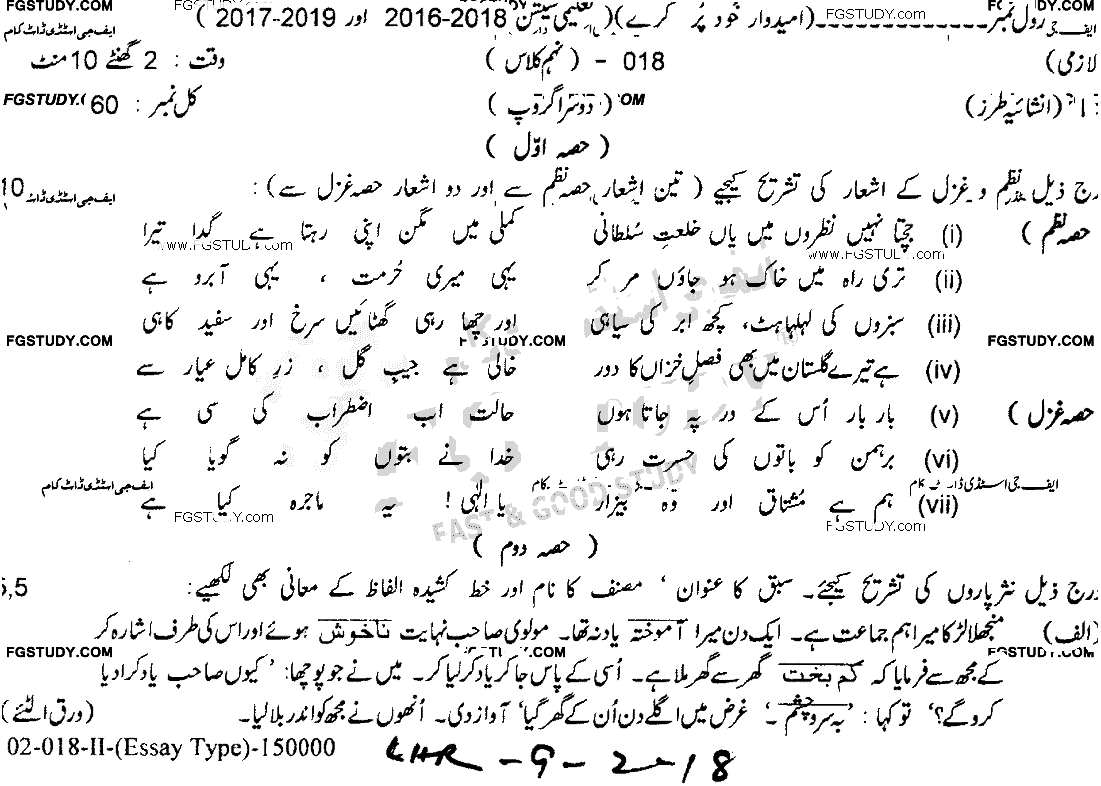 FGSTUDY.COM رول نمبر ــــــــــــ (امیدوار خود پُر کرے) (تعلیمی سیشن 2018-2016 اور 2019-2017) FGSTUDY.com FGSTUDY.COM
ایف جی اسٹڈی ڈاٹ کام
لازمی) 018 - (نہم کلاس) وقت : 2 گھنٹے 10 منٹ
(انشائیہ طرز) (دوسرا گروپ) کل نمبر : 60 FGSTUDY.
( حصہ اوّل )
رج ذیل نظم و غزل کے اشعار کی تشریح کیجیے ( تین اشعار حصہ نظم سے اور دو اشعار حصہ غزل سے) : 10 ایف جی اسٹڈی ڈاٹ
حصہ نظم ) (i) جچتا نہیں نظروں میں یاں خلعتِ سُلطانی کملی میں مگن اپنی رہتا ہے گدا تیرا
www.FGSTUDY.com www.FGSTUDY.com
(ii) تری راہ میں خاک ہو جاؤں مر کر یہی میری حُرمت ، یہی آبرو ہے
(iii) سبزوں کی لہلہاہٹ، کچھ ابر کی سیاہی اور چھا رہی گھٹائیں سرخ اور سفید کاہی
FGSTUDY.COM FGSTUDY.COM FGSTUDY.COM
(iv) ہے تیرے گلستان میں بھی فصلِ خزاں کا دور خالی ہے جیبِ گل ، زرِ کامل عیار سے
حصہ غزل ) (v) بار بار اُس کے در پہ جاتا ہوں حالت اب اضطراب کی سی ہے
(vi) برہمن کو باتوں کی حسرت رہی خدا نے بتوں کو نہ گویا کیا
ایف جی اسٹڈی ڈاٹ کام ایف جی اسٹڈی ڈاٹ کام
(vii) ہم ہے مُشتاق اور وہ بیزار یا الٰہی ! یہ ماجرہ کیا ہے
FGSTUDY.com FAST & GOOD STUDY FGSTUDY.com
( حصہ دوم )
درج ذیل نثر پاروں کی تشریح کیجئے۔ سبق کا عنوان ، مصنف کا نام اور خط کشیدہ الفاظ کے معانی بھی لکھیے : 5,5
(الف) منجھلا لڑکا میرا ہم جماعت ہے۔ ایک دن میرا آموختہ یاد نہ تھا۔ مولوی صاحب نہایت ناخوش ہوئے اور اس کی طرف اشارہ کر
FGSTUDY.COM FGSTUDY.COM
کے مجھ سے فرمایا کہ کم بخت گھر سے گھر ملا ہے۔ اُسی کے پاس جا کر یاد کر لیا کر۔ میں نے جو پوچھا: ’کیوں صاحب یاد کرا دیا
کرو گے؟‘ تو کہا : ’بہ سر و چشم۔‘ غرض میں اگلے دن اُن کے گھر گیا‘ آواز دی۔ اُنھوں نے مجھ کو اندر بلا لیا۔ (ورق الٹئے)
02-018-II-(Essay Type)-150000
LHR - 9 - 2 - 18